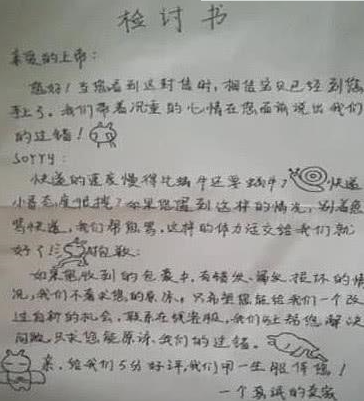 检讨书
亲爱的上帝:
您好!当您看到这封信时,相信宝贝已经到您
手上了。我们带着沉重的心情在您面前说出我们
的过错!
sorry:
快递的速度慢得比蜗牛还要蜗牛?快递
小哥态度很拽?如果您遇到这样的情况,别着急
骂快递,我们帮您骂,这样的体力活交给我们就
好了!抱歉:
如果您收到的包裹中,有错发、漏发、损坏的情
况,我们不奢求您的原谅,只希望您能给我们一个改
过自新的机会,联系在线客服,我们会帮您解决
问题,只求您能原谅我们的过错。
亲,给我们5分好评,我们用一生服侍您!
一个真诚的卖家